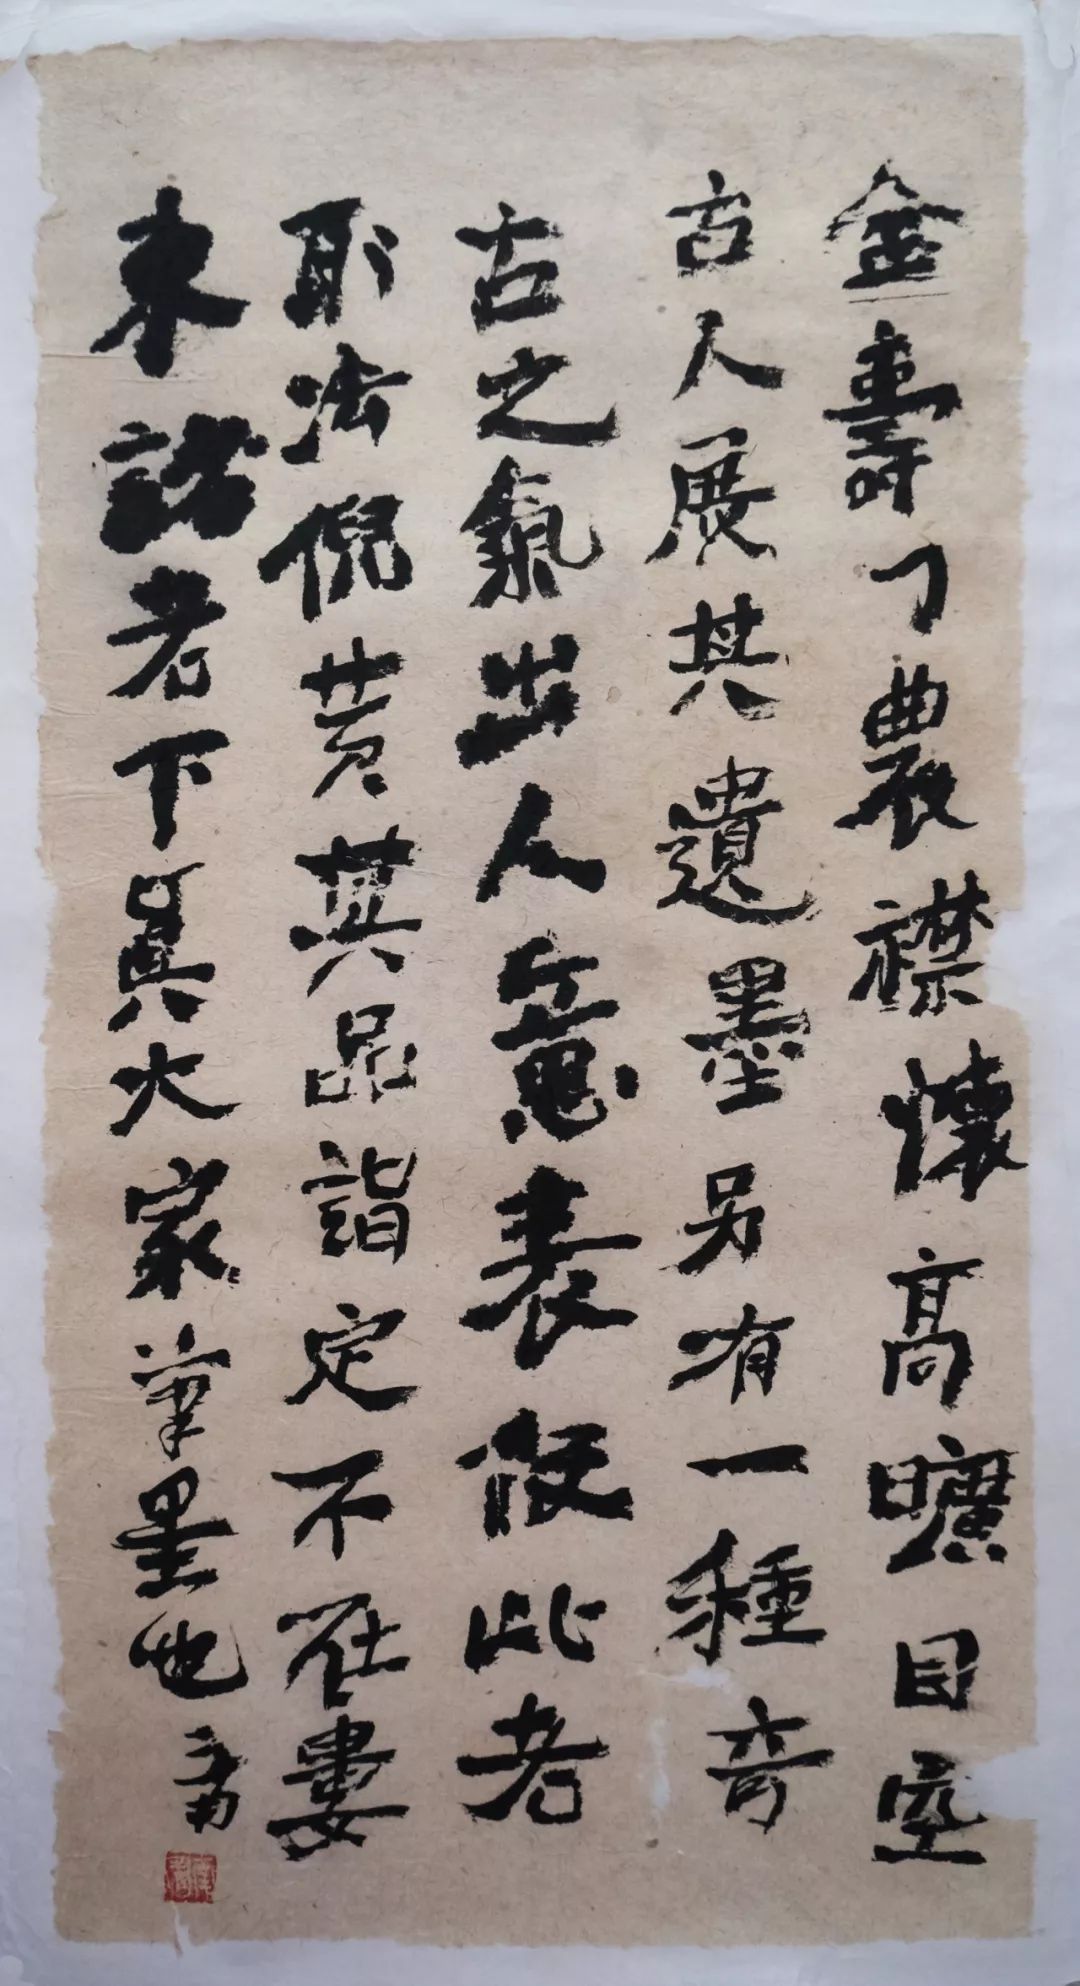 金壽丁農襟懷高曠目空
古人展其遺墨另有一種奇
古之氣出人意表使此老
取法倪黄其品詣定不在婁
東諸老下真大家筆墨也